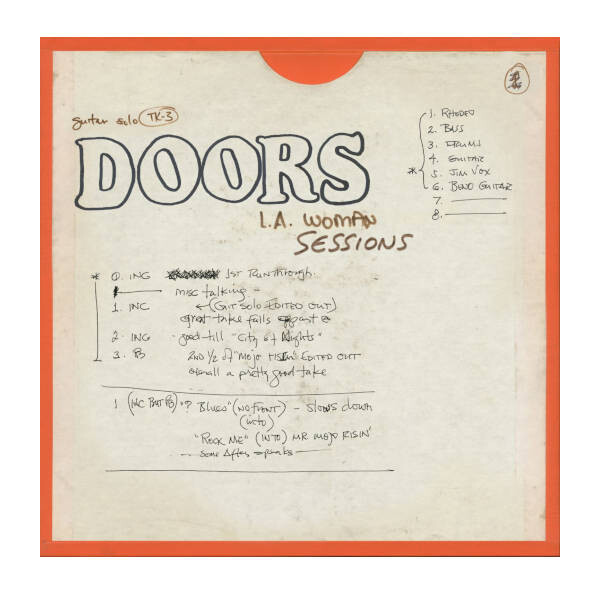 guitar solo TK-3
DOORS
L.A. WOMAN
SESSIONS
1. RHODEO
2. BASS
3. DRUMS
4. GUITAR
* 5. JIM VOX
6. BEND GUITAR
7.
8.
* 0. INC 1ST RUNTHROUGH.
misc talking -
1. INC (GIT SOLO EDITED OUT)
great take falls apart @
2. INC good till "City of Nights"
3. B 2ND 1/2 of "MOJO RISIN" EDITED OUT
overall a pretty good take
1 (INC BUT PB) "? BLUES" (NO FRONT) - SLOWS down
(into)
"ROCK ME" (INTO) MR MOJO RISIN'
Some After speaks